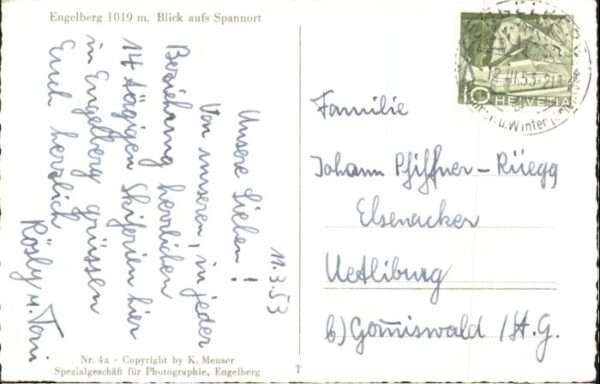 Engelberg 1019 m. Blick aufs Spannort
11.3.53
Unsere Lieben!
Von unseren, in jeder
Beziehung herrlichen
14 tägigen Skiferien hier
in Engelberg grüssen
Euch herzlich
Rösly u. Toni
Familie
Johann Pfiffner-Rüegg
Elsenacker
Uetliburg
b) Gommiswald /St. G.
10 HELVETIA
u. Winter
Nr. 4a - Copyright by K. Meuser
Spezialgeschäft für Photographie, Engelberg
T